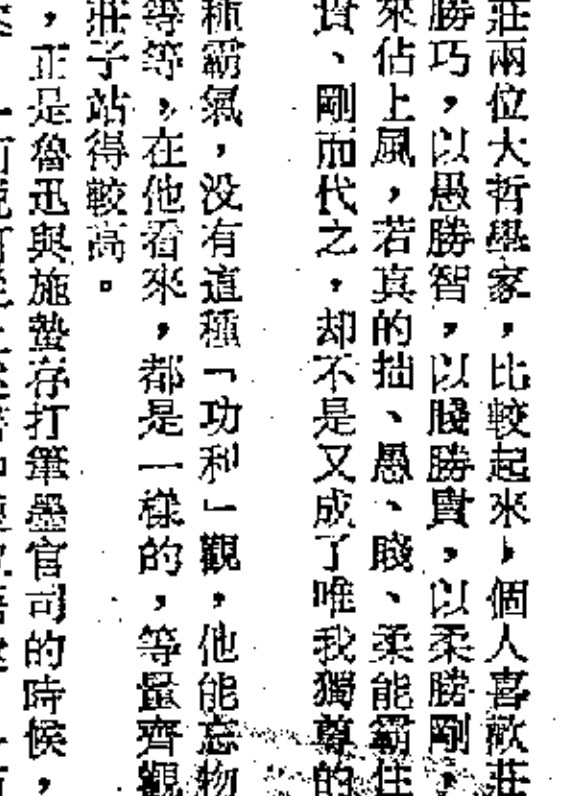 莊兩位大哲學家，比較起來，個人喜歡莊
勝巧，以愚勝智，以賤勝貴，以柔勝剛，
來佔上風，若真的拙、愚、賤、柔能霸住
貴、剛而代之，却不是又成了唯我獨尊的
種霸氣，没有這種「功利」觀，他能忘物
等等，在他看來，都是一樣的，等量齊觀
莊子站得較高。
，正是魯迅與施蟄存打筆墨官司的時候，